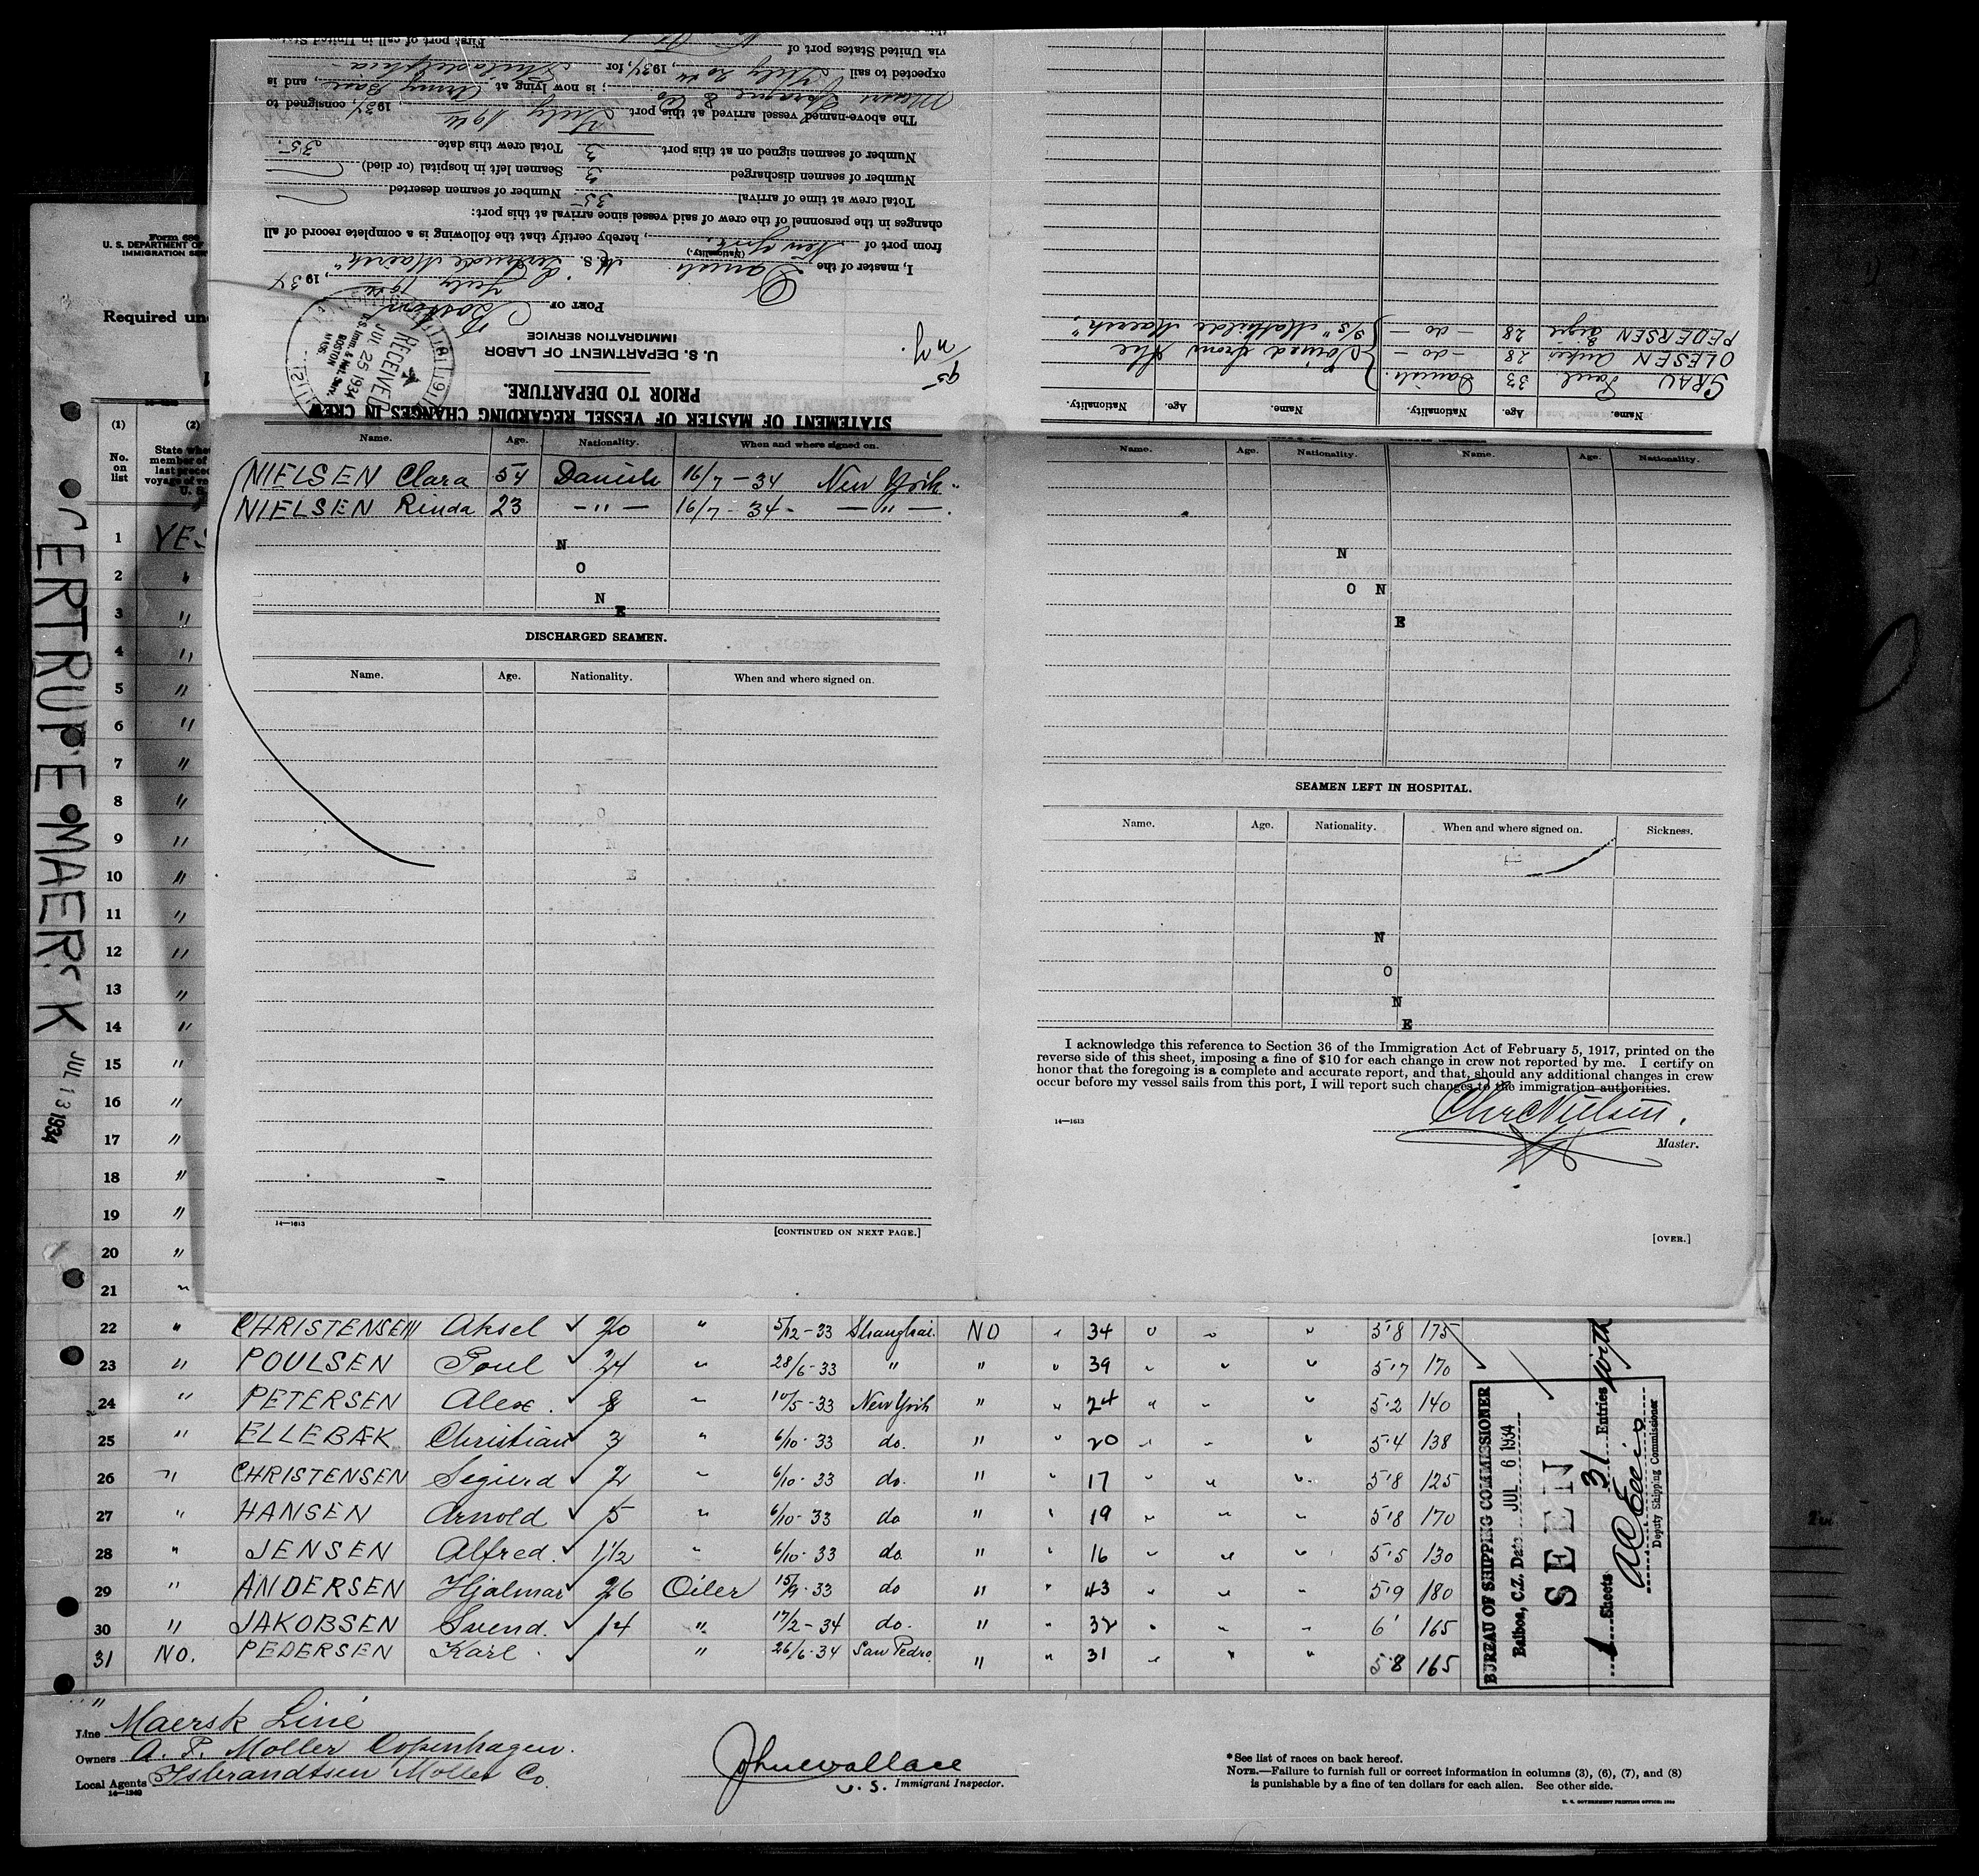 Form 689
U. S. DEPARTMENT OF
IMMIGRATION SER
Required un
(1)
(2)
No.
on
list
State whe
member of
last preced
voyage of ve
U. S.
1 YES
2 "
3 "
4 "
5 "
6 "
7 "
8 "
9 "
10 "
11 "
12 "
13 "
14 "
15 "
16 "
17 "
18 "
19 "
20 "
21 "
GERTRUDE MAERSK
JUL 13 1934
STATEMENT OF MASTER OF VESSEL REGARDING CHANGES IN CREW
PRIOR TO DEPARTURE.
U. S. DEPARTMENT OF LABOR
IMMIGRATION SERVICE
RECEIVED
JUL 25 1934
U.S. Imm. & Nat. Serv.
BOSTON
MASS.
PORT OF Boston
July 19th, 1934
I, master of the Danish M. S. "Gertrude Maersk",
(Nationality.)
from port of New York, hereby certify that the following is a complete record of all
changes in the personnel of the crew of said vessel since arrival at this port:
Total crew at time of arrival 35 Number of seamen deserted
Number of seamen discharged 3 Seamen left in hospital (or died)
Number of seamen signed on at this port 3 Total crew this date 35.
The above-named vessel arrived at this port July 19th, 1934, consigned to
Sprague & Co; is now lying at Army Base, and is
expected to sail July 20th, 1934, for Philadelphia
via United States port of
First port of call in United States
Name. Age. Nationality. Name. Age. Nationality.
GRAU Poul 33 Danish.
OLESEN 28 - do -
PEDERSEN 28 - do -
S/S "Mathilde Maersk".
Name. Age. Nationality. When and where signed on.
NIELSEN Clara 54 Danish 16/7-34 New York.
NIELSEN Rinda 23 -"- 16/7-34- -"-.
N
O
N
E
DISCHARGED SEAMEN.
Name. Age. Nationality. When and where signed on.
14—1613
[CONTINUED ON NEXT PAGE.]
Name. Age. Nationality. Name. Age. Nationality.
N
O N
E
SEAMEN LEFT IN HOSPITAL.
Name. Age. Nationality. When and where signed on. Sickness.
N
O
N
E
I acknowledge this reference to Section 36 of the Immigration Act of February 5, 1917, printed on the
reverse side of this sheet, imposing a fine of $10 for each change in crew not reported by me. I certify on
honor that the foregoing is a complete and accurate report, and that, should any additional changes in crew
occur before my vessel sails from this port, I will report such changes to the immigration authorities.
Chr C Nielsen.
Master.
14—1613
[OVER.]
22 " CHRISTENSEN Aksel 20 " 5/12-33 Shanghai. NO " 34 " " " 5'8 175
23 " POULSEN Poul 24 " 28/6-33 " " " 39 " " " 5'7 170
24 " PETERSEN Alex. 8 " 10/5-33 New York " " 24 " " " 5'2 140
25 " ELLEBÆK Christian 3 " 6/10-33 do. " " 20 " " " 5'4 138
26 " CHRISTENSEN Sigurd 2 " 6/10-33 do. " " 17 " " " 5'8 125
27 " HANSEN Arnold 5 " 6/10-33 do " " 19 " " " 5'8 170
28 " JENSEN Alfred. 1 1/2 " 6/10-33 do. " " 16 " " " 5'5 130
29 " ANDERSEN Hjalmar 26 Oiler 15/9-33 do " " 43 " " " 5'9 180
30 " JAKOBSEN Svend. 14 " 17/2-34 do. " " 32 " " " 6' 165
31 NO. PEDERSEN Karl. " 26/6-34 San Pedro. " " 31 " " " 5'8 165
BUREAU OF SHIPPING COMMISSIONER
Balboa, C.Z. Date JUL 6 1934
SEEN
1 Sheets 31 Entries with
Deputy Shipping Commissioner
Line Maersk Line
Owners A. P. Moller Copenhagen.
Local Agents Isbrandtsen Moller Co.
14—1240
John Wallace
U.S. Immigrant Inspector.
* See list of races on back hereof.
NOTE.—Failure to furnish full or correct information in columns (3), (6), (7), and (8)
is punishable by a fine of ten dollars for each alien. See other side.
U. S. GOVERNMENT PRINTING OFFICE